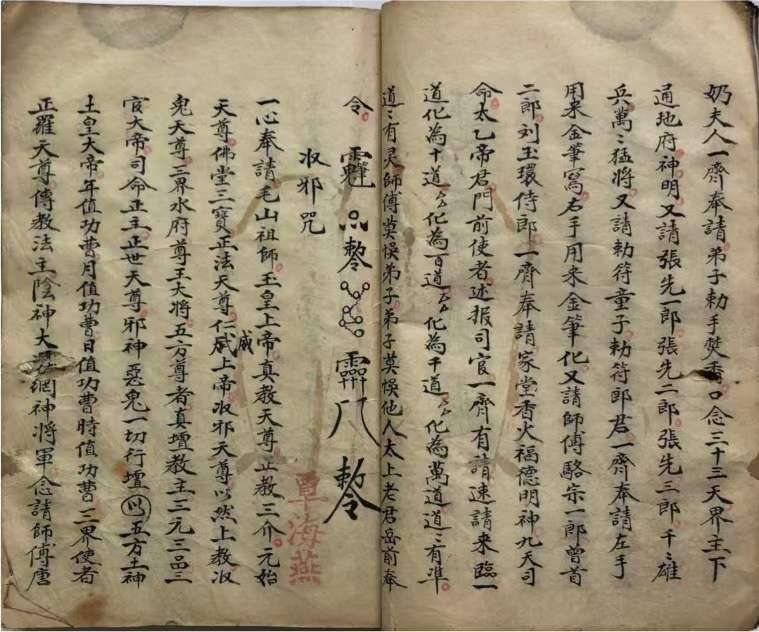 奶夫人一齊奉請弟子勅手焚香口念三十三天界主下
通地府神明又請張先一郎張先二郎張先三郎千〻雄
兵萬〻猛將又請勅符童子勅符郎君一齊奉請左手
用来金筆寫右手用来金筆化又請師傅駱宗一郎曾首
二郎刘玉環侍郎一齊奉請家堂香火福德明神九天司
命太乙帝君門前使者述报司官一齊有請速請来臨一
道化為十道〻〻化為百道〻〻化為千道〻〻化為萬道道〻有準
道〻有灵師傅莫悞弟子弟子莫悞他人太上老君岳前奉
令
收邪咒
一心奉請毛山祖師玉皇上帝真教天尊正教三介元始
天尊佛堂三寶正法天尊仁威上帝收邪天尊以然上教收
鬼天尊三界水府尊王大將五方尊者真壇教主三元三品三
官大帝司命正主正世天尊邪神惡鬼一切行壇以五方土神
土皇大帝年值功曹月值功曹日值功曹時值功曹三界使者
正羅天尊傳教法主陰神大羅網神將軍念請師傅唐
覃海燕